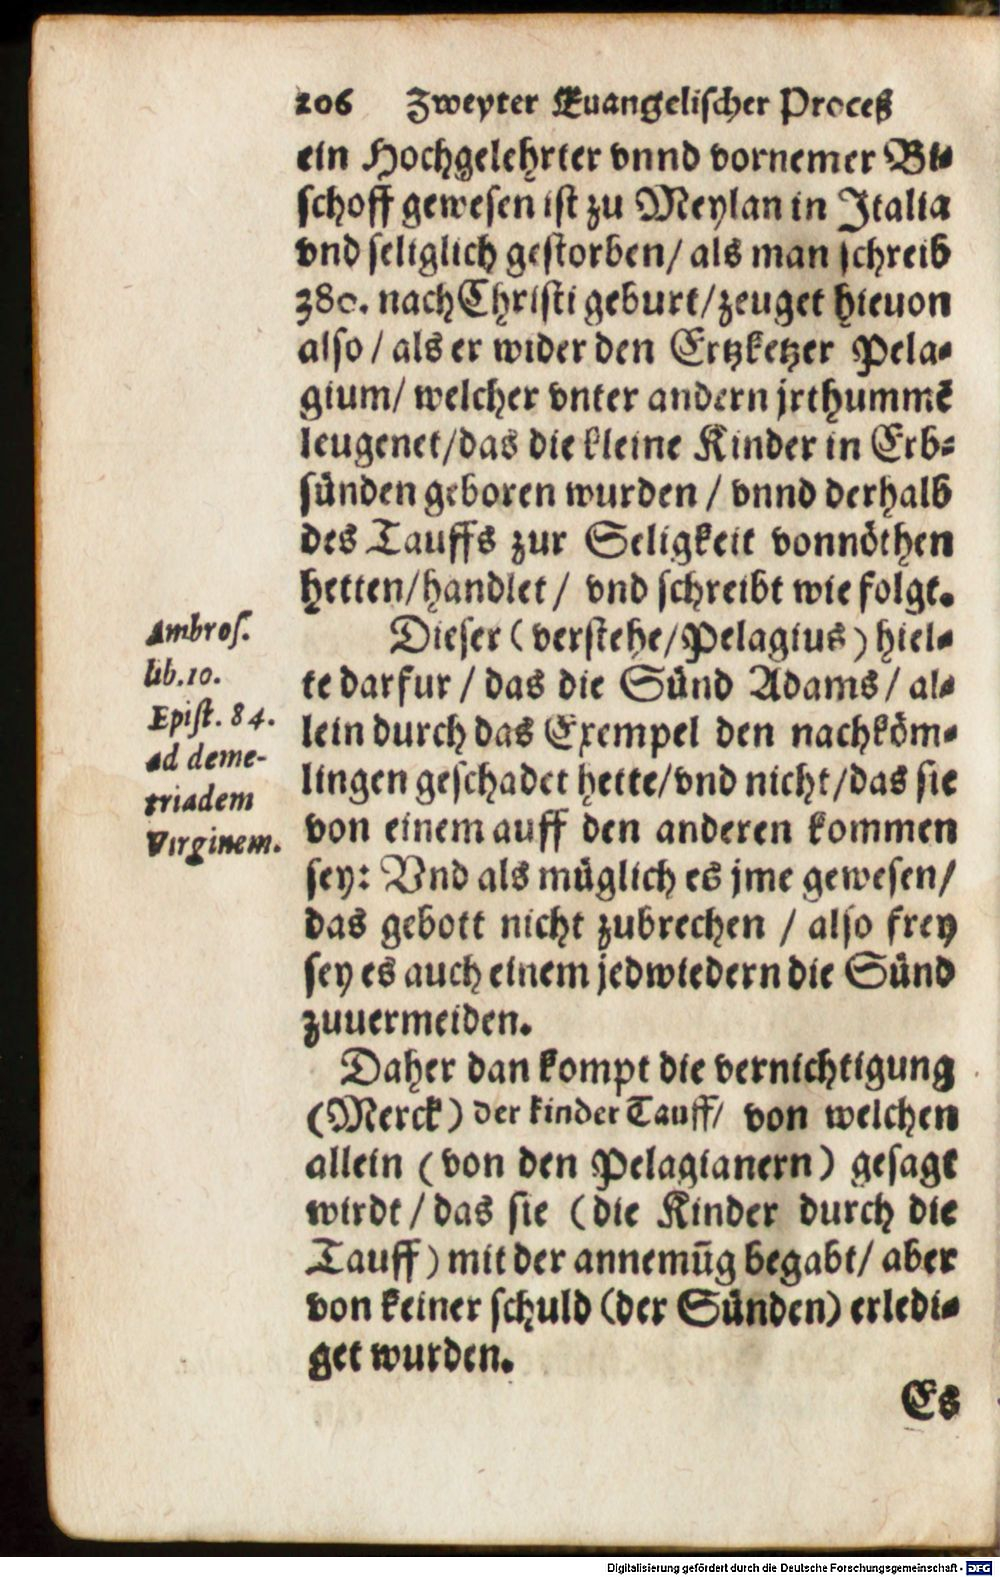 206 Zweyter Euangelischer Proceß
ein Hochgelehrter vnnd vornemer Bi-
schoff gewesen ist zu Meylan in Italia
vnd seliglich gestorben/ als man schreib
380. nach Christi geburt/ zeuget hieuon
also / als er wider den Ertzketzer Pela-
gium/ welcher vnter andern jrthummẽ
leugenet/ das die kleine Kinder in Erb-
sünden geboren wurden / vnnd derhalb
des Tauffs zur Seligkeit vonnöthen
hetten/ handlet / vnd schreibt wie folgt.
Dieser ( verstehe/ Pelagius ) hiel-
te darfur / das die Sünd Adams / al-
lein durch das Exempel den nachköm-
lingen geschadet hette/ vnd nicht/ das sie
von einem auff den anderen kommen
sey: Vnd als müglich es jme gewesen/
das gebott nicht zubrechen / also frey
sey es auch einem jedwiedern die Sünd
zuuermeiden.
Daher dan kompt die vernichtigung
(Merck) der kinder Tauff/ von welchen
allein ( von den Pelagianern ) gesagt
wirdt / das sie ( die Kinder durch die
Tauff ) mit der annemũg begabt/ aber
von keiner schuld (der Sünden) erledi-
get wurden.
Es
Ambros.
lib.10.
Epist. 84.
ad deme-
triadem
Virginem.
Digitalisierung gefördert durch die Deutsche Forschungsgemeinschaft - DFG